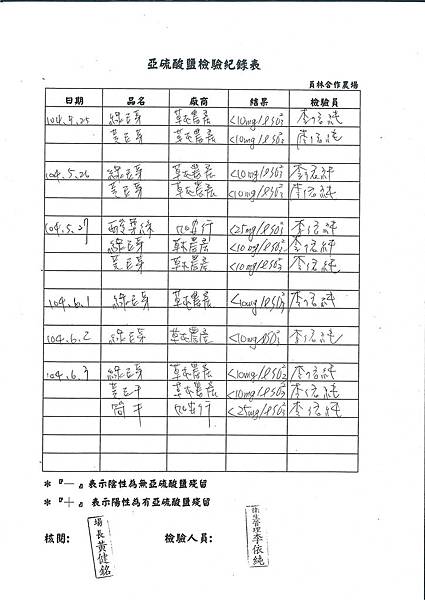 亞硫酸鹽檢驗紀錄表
員林合作農場
日期 品名 廠商 結果 檢驗員
104.5.25 綠豆芽 草屯農產 <10mg/l SO₃²⁻ 李依純
黃豆芽 草屯農產 <10mg/l SO₃²⁻ 李依純
104.5.26 綠豆芽 草屯農產 <10mg/l SO₃²⁻ 李依純
黃豆芽 草屯農產 <10mg/l SO₃²⁻ 李依純
104.5.27 酸菜絲 <25mg/l SO₃²⁻ 李依純
綠豆芽 草屯農產 <10mg/l SO₃²⁻ 李依純
黃豆芽 草屯農產 <10mg/l SO₃²⁻ 李依純
104.6.1 綠豆芽 草屯農產 <10mg/l SO₃²⁻ 李依純
104.6.2 綠豆芽 草屯農產 <10mg/l SO₃²⁻ 李依純
104.6.3 綠豆芽 草屯農產 <10mg/l SO₃²⁻ 李依純
豆干 草屯農產 <10mg/l SO₃²⁻ 李依純
筒干 <25mg/l SO₃²⁻ 李依純
＊『－』表示陰性為無亞硫酸鹽殘留
＊『＋』表示陽性為有亞硫酸鹽殘留
核閱: 場長黃健銘 檢驗人員: 衛生管理李依純